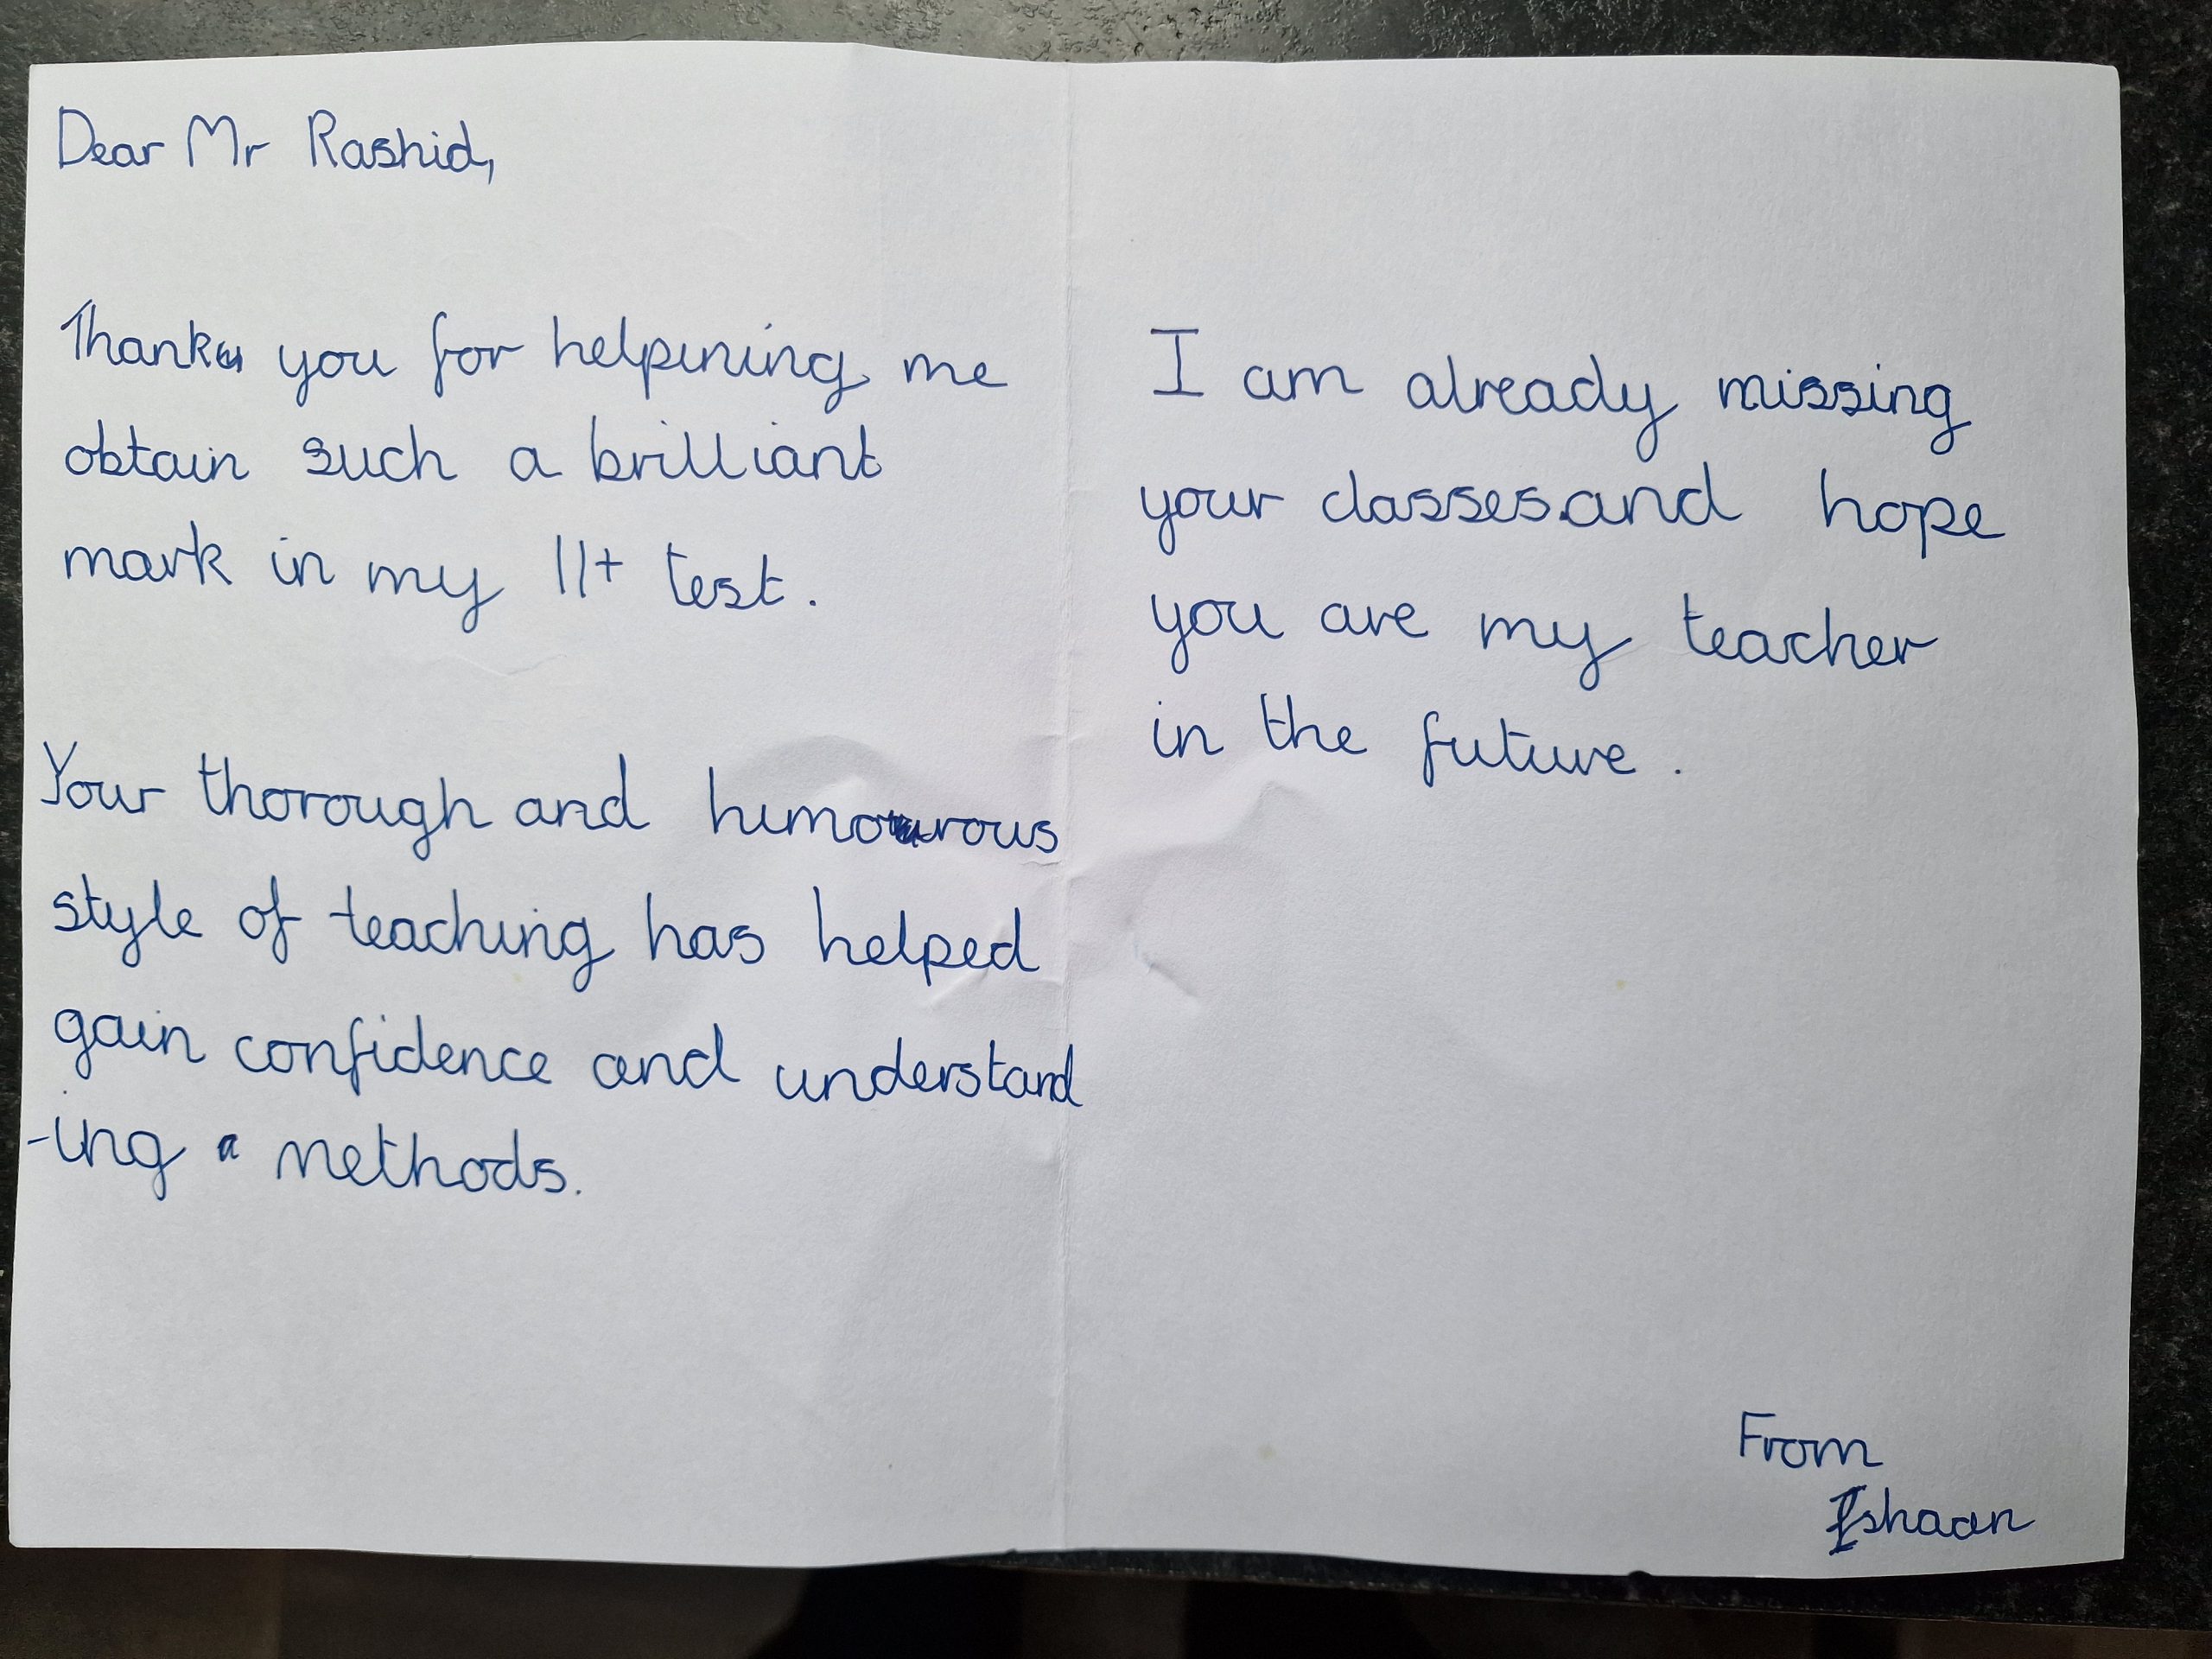 Dear Mr Rashid,
Thank you for helpining me
obtain such a brilliant
mark in my 11+ test.
Your thorough and humourous
style of teaching has helped
gain confidence and understand
-ing a methods.
I am already missing
your classes.and hope
you are my teacher
in the future.
From
Ishaan